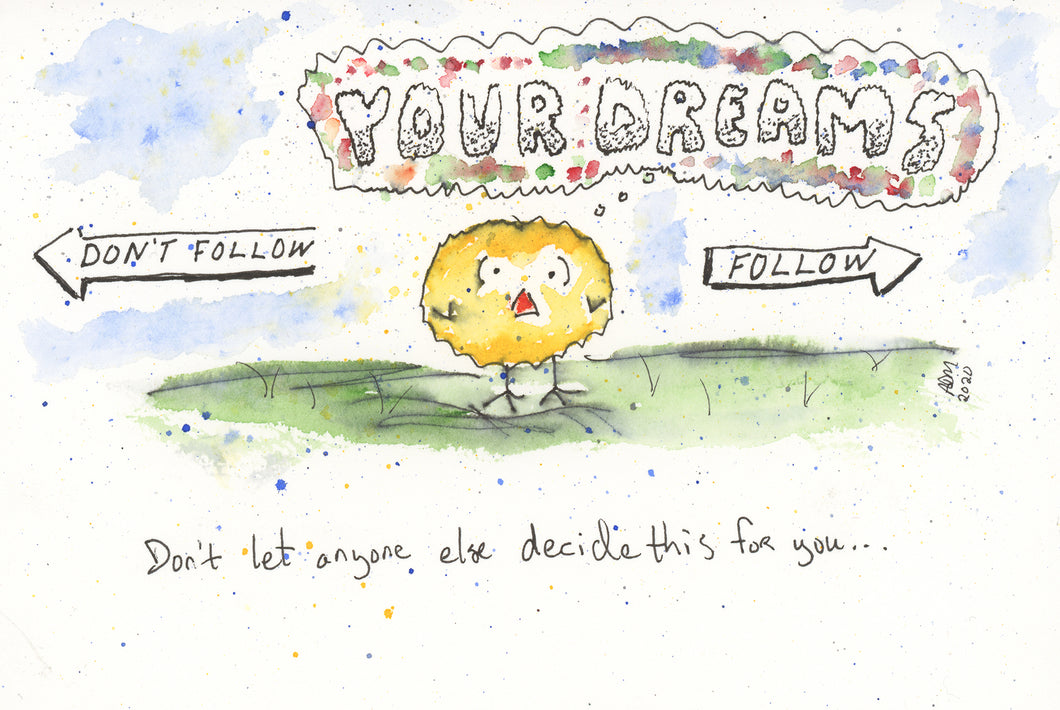 YOUR DREAMS
DON'T FOLLOW
FOLLOW
ADM
2020
Don't let anyone else decide this for you...